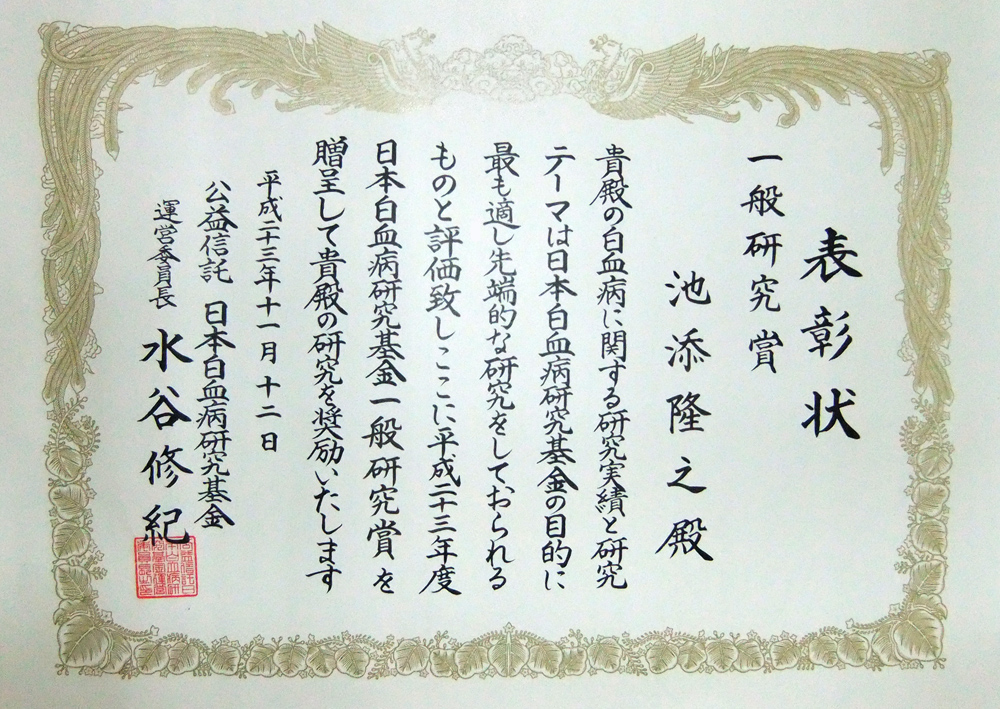 表彰状
一般研究賞
池添隆之殿
貴殿の白血病に関する研究実績と研究
テーマは日本白血病研究基金の目的に
最も適し先端的な研究をしておられる
ものと評価致しここに平成二十三年度
日本白血病研究基金一般研究賞を
贈呈して貴殿の研究を奨励いたします
平成二十三年十一月十二日
公益信託 日本白血病研究基金
運営委員長 水谷修紀